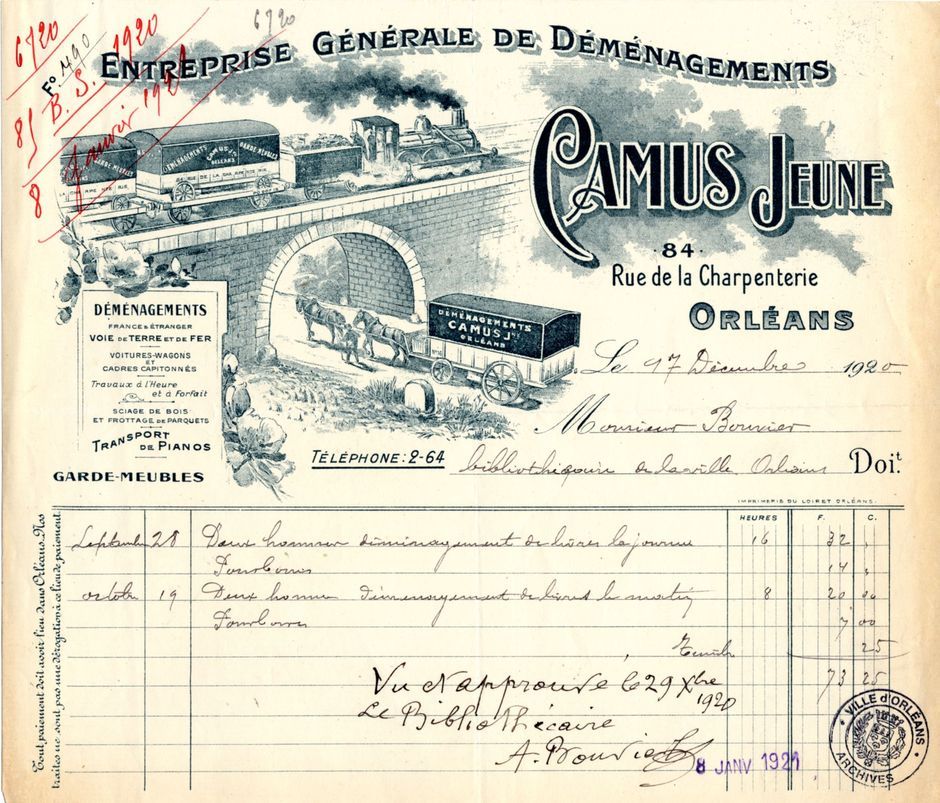 6720
6720
Fº 490
8/ B. S. 1920
8 Janvier 1921
ENTREPRISE GÉNÉRALE DE DÉMÉNAGEMENTS
CAMUS JEUNE
·84·
Rue de la Charpenterie
ORLÉANS
DÉMÉNAGEMENTS
CAMUS Jne
ORLÉANS
GARDE-MEUBLES
DÉMÉNAGEMENTS
CAMUS Jne
ORLÉANS
DÉMÉNAGEMENTS
FRANCE & ÉTRANGER
VOIE DE TERRE ET DE FER
VOITURES-WAGONS
ET
CADRES CAPITONNÉS
Travaux à l'Heure
et à Forfait
SCIAGE DE BOIS
ET FROTTAGE DE PARQUETS
TRANSPORT
DE PIANOS
GARDE-MEUBLES
TÉLÉPHONE: 2-64
Le 17 Décembre 1920
Monsieur Bouvier
bibliothéquire de la ville Orléans Doit.
IMPRIMERIE DU LOIRET ORLÉANS.
HEURES F. C.
Tout paiement doit avoir lieu dans Orléans. Nos
traites ne sont pas une dérogation à ce lieu de paiement.
Septembre 28 Deux hommes déménagement de livres la journée 16 32 ,
Pourboires 14 ,
octobre 19 Deux homme déménagement de livres le matin 8 20 00
Pourboires 7 00
Timbre 25
73 25
Vu et approuvé le 29 Xbre
1920
Le Bibliothécaire
A. Bouvier
8 JANV 1921
VILLE D'ORLÉANS
ARCHIVES